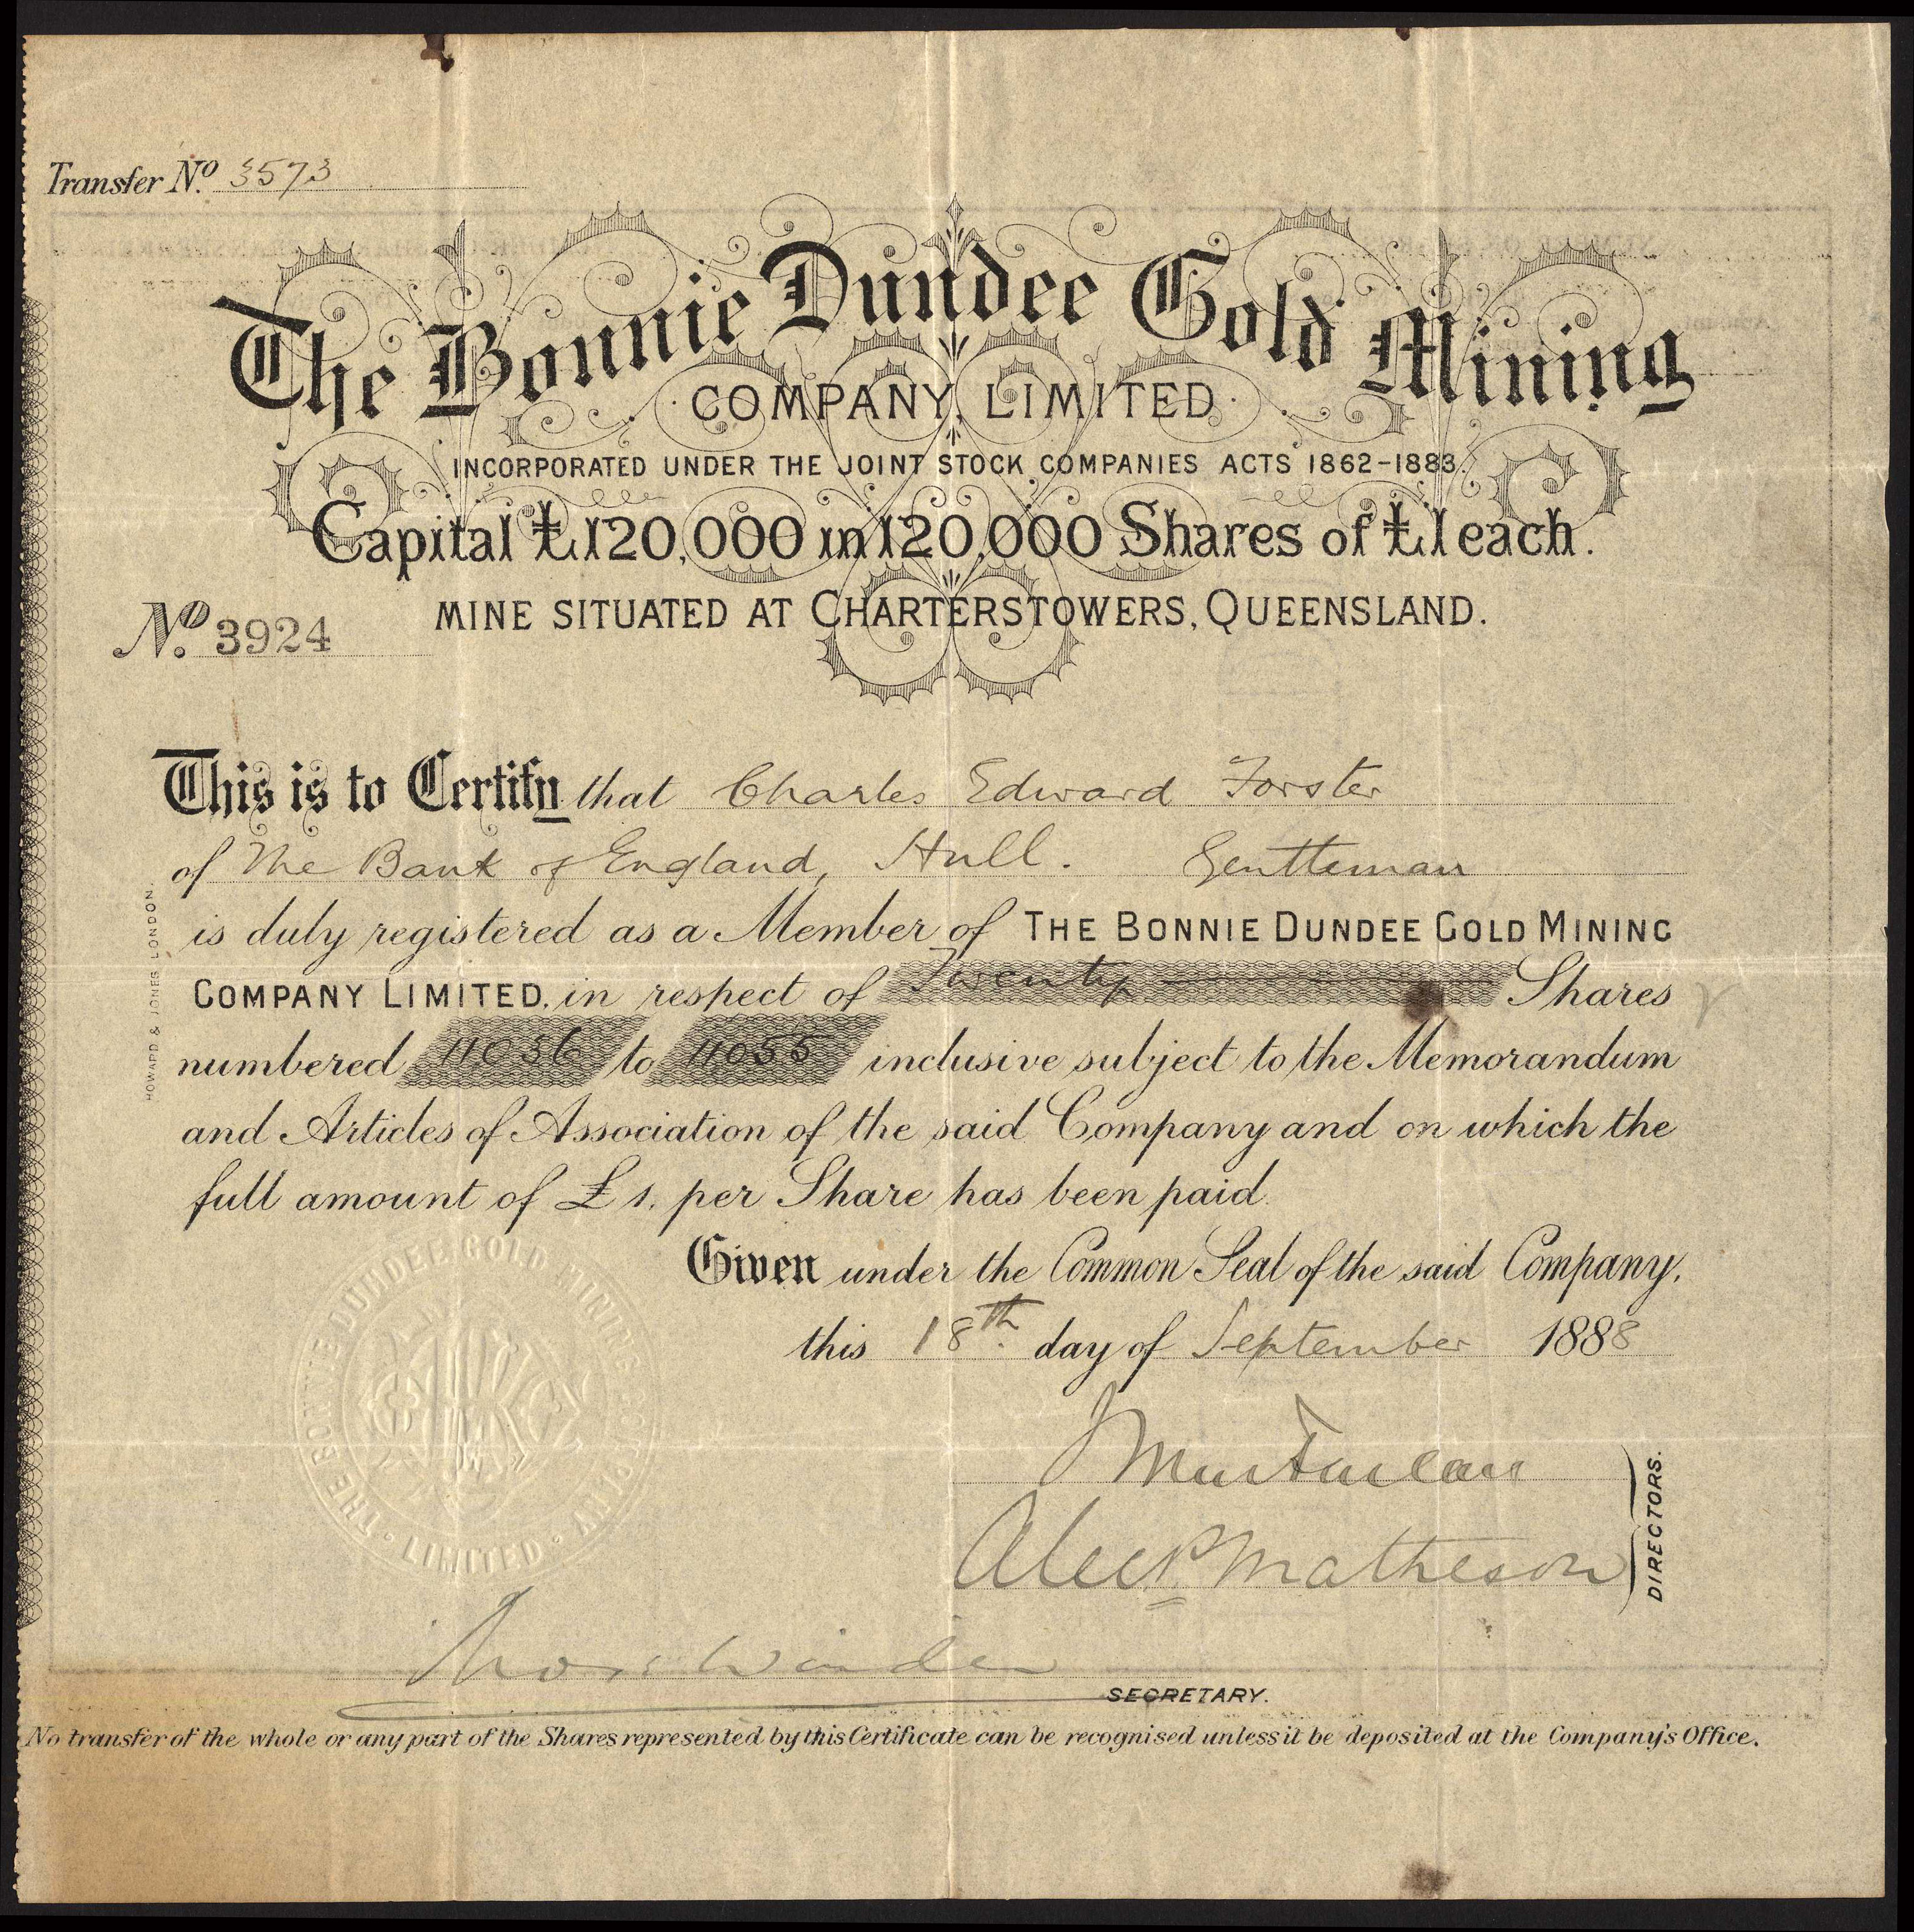 Transfer No. 3573
The Bonnie Dundee Gold Mining
COMPANY, LIMITED
INCORPORATED UNDER THE JOINT STOCK COMPANIES ACTS 1862-1883.
Capital £120,000 in 120,000 Shares of £1 each.
MINE SITUATED AT CHARTERSTOWERS, QUEENSLAND.
No. 3924
This is to Certify that Charles Edward Forster
of The Bank of England, Hull. Gentleman
is duly registered as a Member of THE BONNIE DUNDEE GOLD MINING
COMPANY LIMITED, in respect of Twenty Shares
numbered 11036 to 11055 inclusive subject to the Memorandum
and Articles of Association of the said Company and on which the
full amount of £1. per Share has been paid.
Given under the Common Seal of the said Company,
this 18th day of September 1888
J MacFarlan
Alexr. Matheson
DIRECTORS.
THE BONNIE DUNDEE GOLD MINING COMPANY LIMITED
SECRETARY.
No transfer of the whole or any part of the Shares represented by this Certificate can be recognised unless it be deposited at the Company's Office.
HOWARD & JONES LONDON.